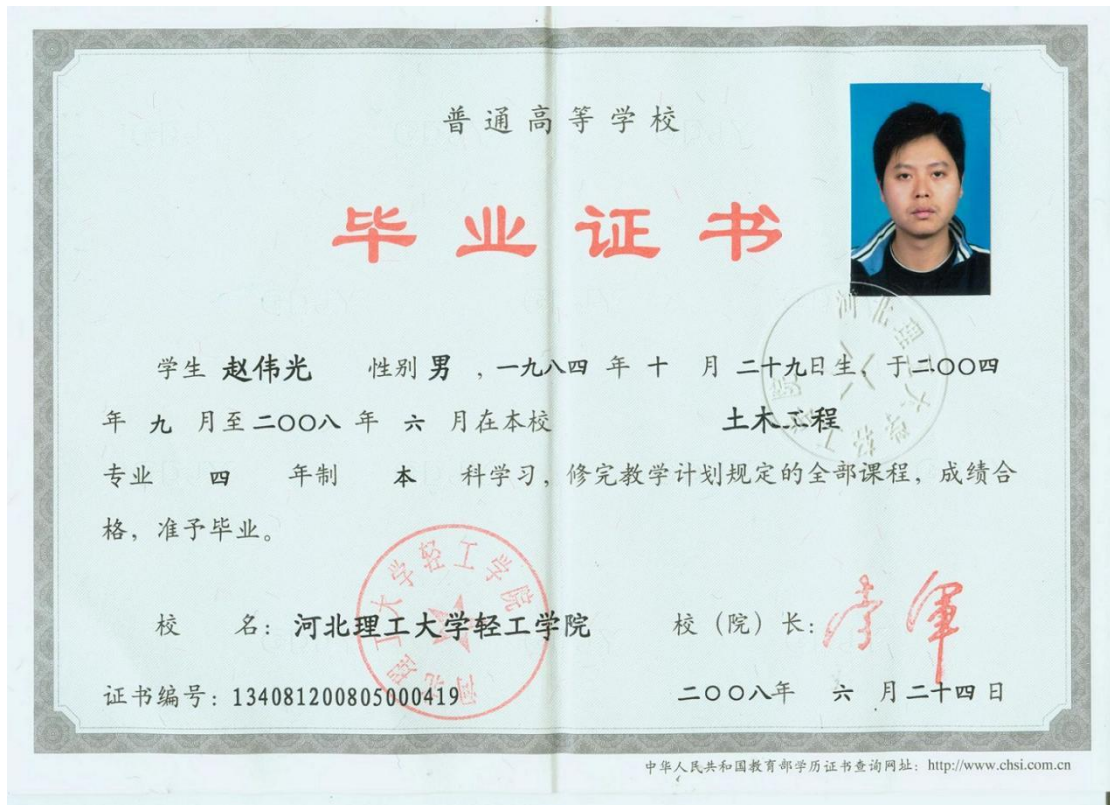 普通高等学校
毕业证书
学生 赵伟光 性别 男 ，一九八四 年 十 月 二十九日生、于二〇〇四
年 九 月至 二〇〇八 年 六 月在本校 土木工程
专业 四 年制 本 科学习，修完教学计划规定的全部课程，成绩合
格，准予毕业。
校 名：河北理工大学轻工学院 校（院）长：
证书编号：134081200805000419 二〇〇八年 六 月二十四日
河北理工大学轻工学院
中华人民共和国教育部学历证书查询网址：http://www.chsi.com.cn